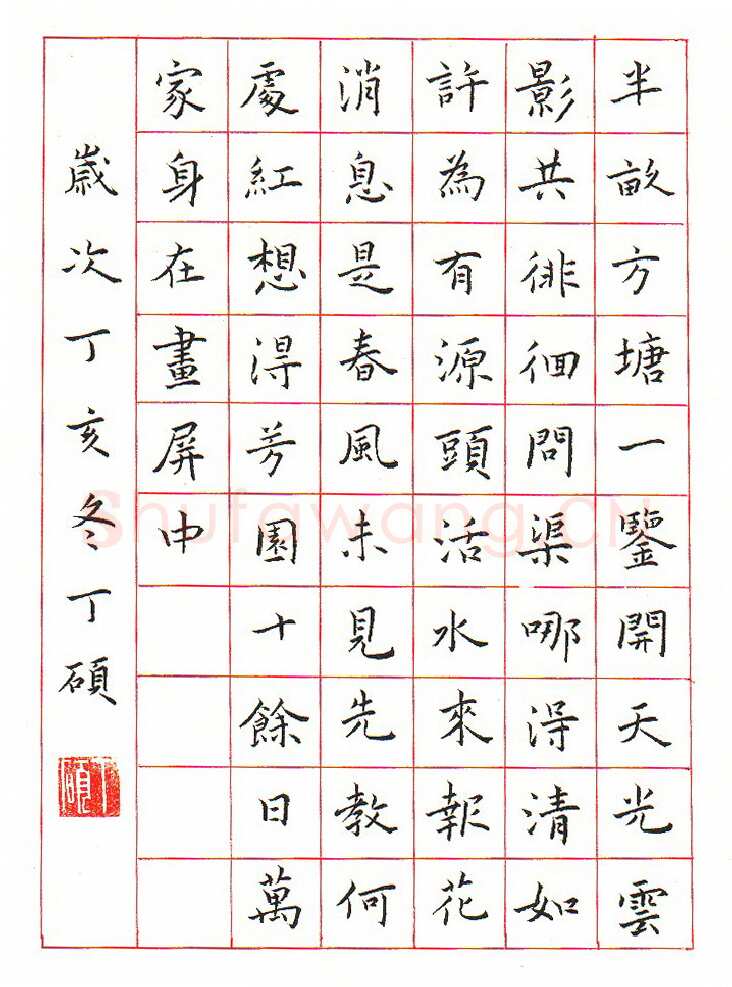 半畝方塘一鑒開天光雲
影共徘徊問渠哪得清如
許為有源頭活水來報花
消息是春風未見先教何
處紅想得芳園十餘日萬
家身在畫屏中
歲次丁亥冬丁碩
丁碩
Shufawang.CN